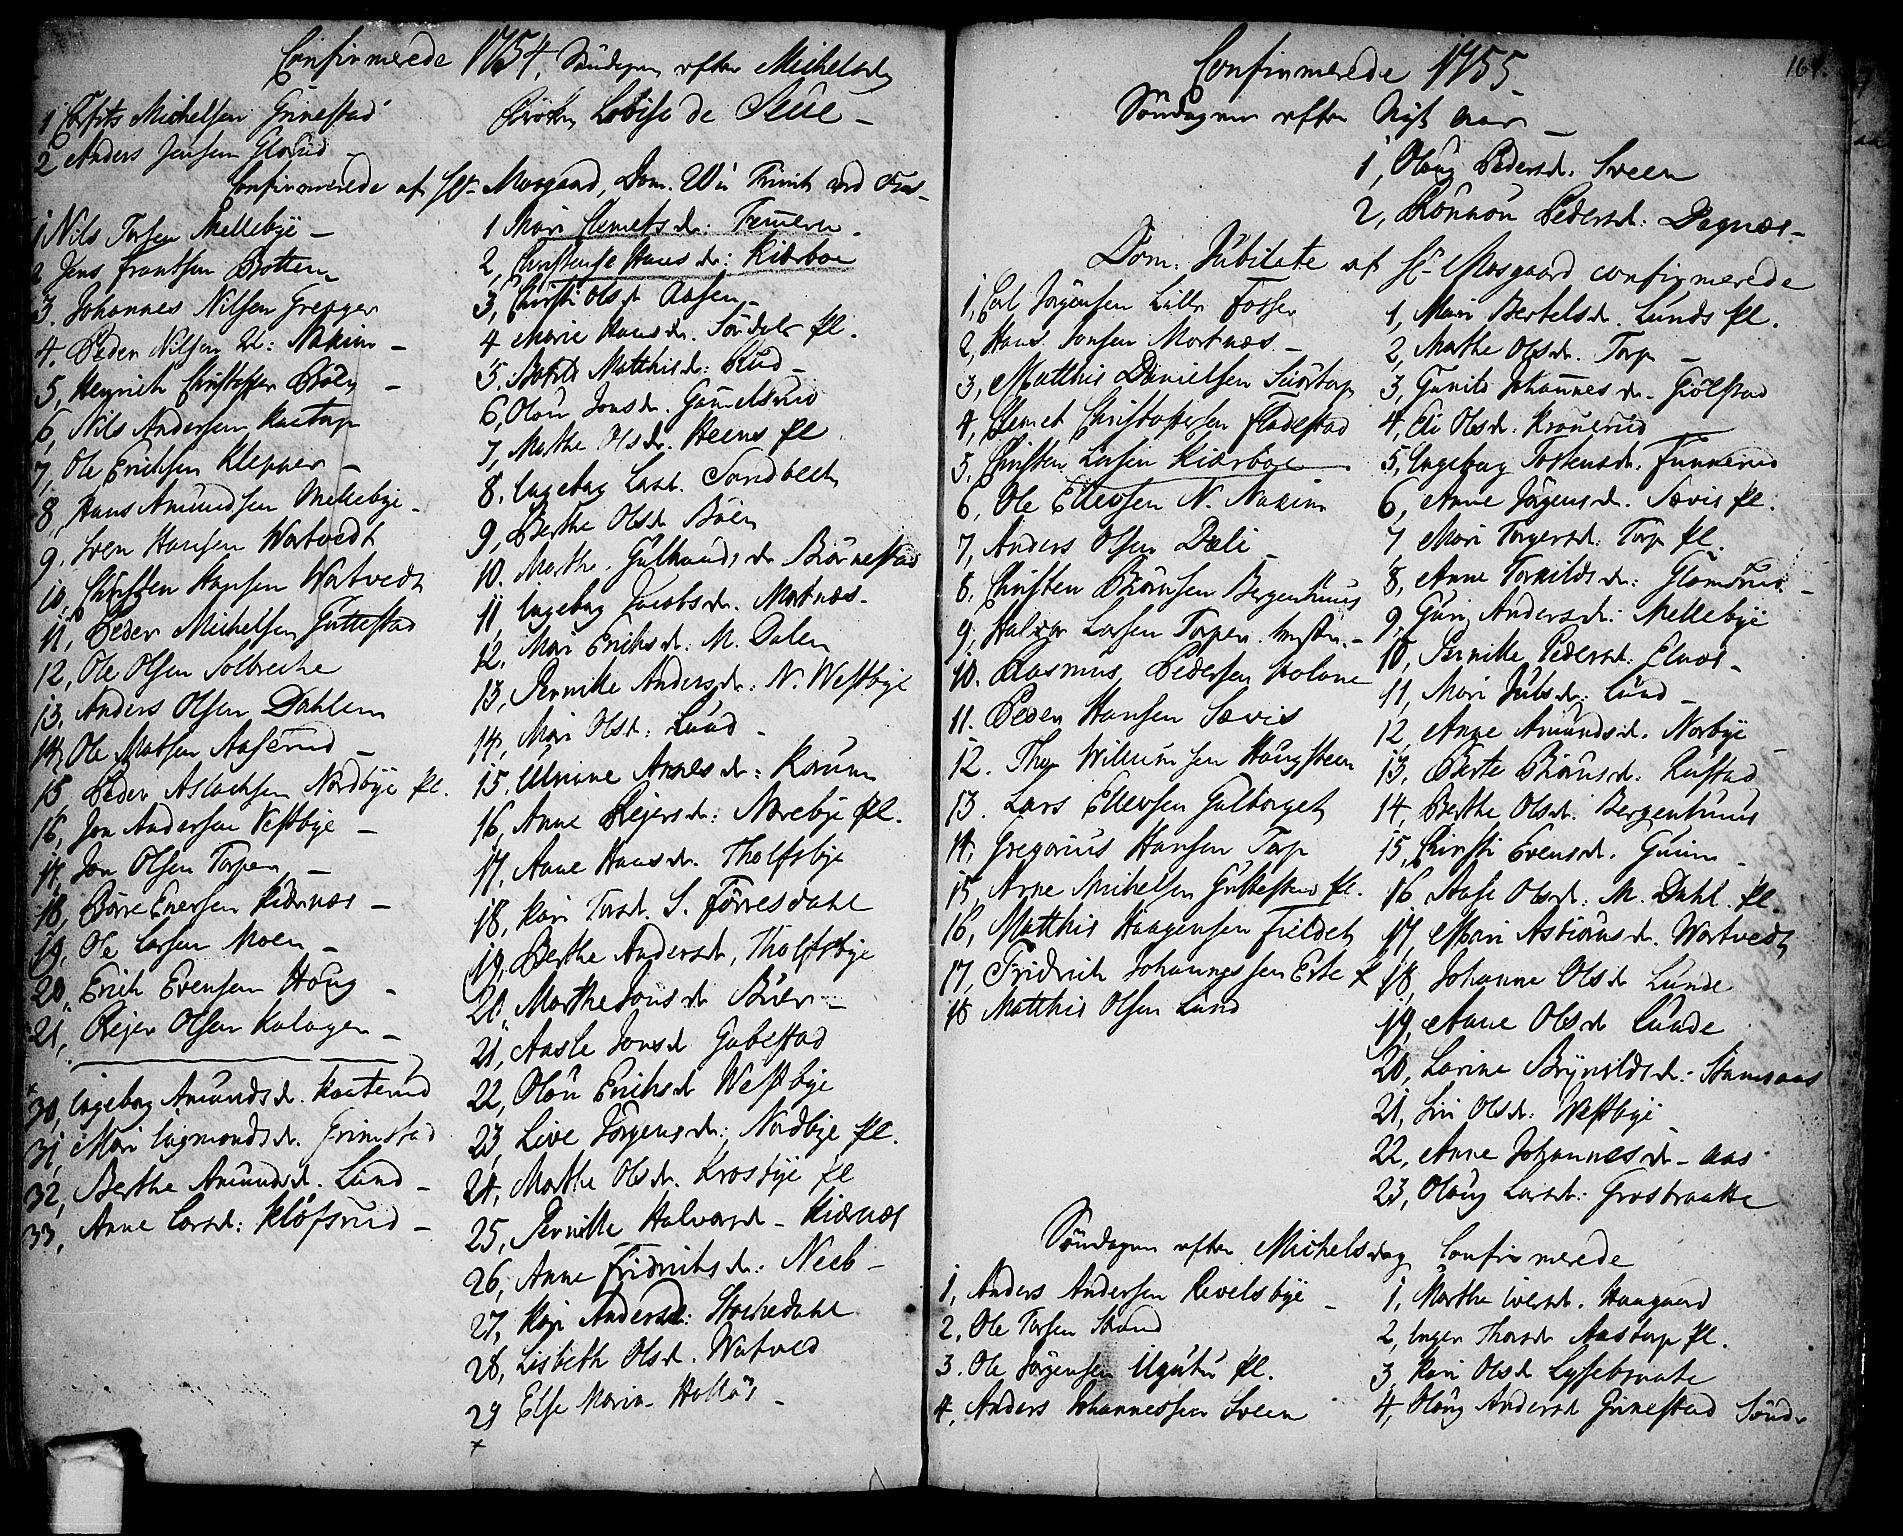 Confirmerede 1754, Söndagen efter Michelsdag
1 Michelsen Grinestad
2 Anders Jensen
Lovise de Seue
Confirmerede af Hr. Mosgaard, Dom. Trinit
1 Nils Torsen Mellebÿe
2 Jens Frantsen Brotten
3. Johannes Nilsen Grepger
4. Peder Nilsen Nakim
5, Henrich Christoffer
6, Nils Andersen Kaatorp
7, Ole Erichsen Klepper
8, Hans Amundsen Mellebÿe
9. Sven Hansen Watvedt
10. Christen Hansen Watvedt
11, Peder Michelsen Guttestad
12, Ole Olsen Solbreche
13, Anders Olsen Dahlen
14, Ole Matsen Aaserud
15 Peder Aslachsen Nordbÿe pl.
16, Jon Andersen Vestbÿe
17, Jon Olsen Torpen
18, Börre Enersen Kiærnæs
19, Ole Larsen Moen
20, Erich Evensen Houg
21, Rejer Olsen Kalager
30, Ingeborg Amundsd. Kaaterud
31, Mari Sigmondsd. Grimstad
32, Berthe Amundsd. Lund
33, Anne Larsd: Klöfsrud
1 Mari Clemetsd:
2, Christense Hansd: Kiærboe
3, Kirsti Olsd. Aasen
4 Marie Hansd. Sördal pl.
5. Matthisd: Rud
6, Olou Jonsd. Gamelsrud
7, Marthe Olsd. Steens pl
8. Ingebog Larsd. Sandbech
9, Berthe Olsd. Böen
10. Marthe Gulbrandsd Biörnestad
11 Ingebog Jacobsd. Mortnæs
12. Mari Erichsd: M. Dalen
13, Pernille Andersd: N. Westbÿe
14, Mari Olsd: Lund
15, Arnesd: Kaum
16, Anne Rejersd: Norebÿe pl.
17, Anne Hansd. Tholfsbÿe
18, Kari Torsd. S. Förresdahl
19, Berthe Andersd, Tholfsbÿe
20, Marthe Jonsd Böen
21, Aasle Jonsd Gabestad
22, Olou Erichsd Westbÿe
23, Live Jörgensd: Nordbÿe pl.
24, Marthe Olsd. Krosbÿe pl
25, Pernille Halvorsd. Kiærnæs
26, Anne Fridrichsd: Neeb
27, Kari Andersd: Stochedahl
28, Lisbeth Olsd. Watved
29 Else Maria Holtös
Confirmerede 1755
Söndagen efter Nÿt aar
1, Oloug Pedersd. Sveen
2, Rönnou Pedersd: Degnæs
Dom. Jubilate af Hr Mosgaard confirmerede
1, Carl Jörgensen Lille Fosser
2, Hans Jonsen Mortnæs
3, Matthis Danielsen Suortorp
4, Clemet Christophersen Fladestad
5. Christen Larsen Kiærboe
6, Ole Ellevsen N. Nakim
7, Anders Olsen Dæli
8. Christen Biörnsen Bergenhuus
9. Halvor Larsen Torpen
10. Rasmus Pedersen Holone
11. Peder Hansen Sævis
12. Thor Willumsen Haugsteen
13. Lars Ellevsen Gultorget
14. Gregorius Hansen Torp
15, Arne Michelsen Guttestad pl.
16, Matthis Haagensen Fieldet
17, Fridrich Johannessen Erte
18 Matthis Olsen Lund
1, Mari Bertelsd. Lunds pl.
2, Marthe Olsd. Torp
3, Gunild Johannesd. Giölstad
4, Eli Olsd. Kronerud
5, Ingebog Tostensd. Funnerud
6, Anne Jörgensd. Sævis pl.
7 Mari Torgersd. Torp pl.
8, Anne Torkildsd: Glomsrud
9, Guri Andersd: Mellebÿe
10, Pernille Pedersd: Elnæs
11, Mari Julsd: Lund
12, Anne Amundsd. Norbÿe
13, Berte Biörnsd: Rustad
14, Berthe Olsd. Bergenhuus
15, Kirsti Evensd. Guum
16 Aase Olsd: M. Dahl. pl.
17, Mari Asbiörnsd. Watvedt
18, Johanne Olsd Lunde
19, Anne Olsd Lunde
20, Larine Brÿnildsd: Stamsaas
21, Siri Olsd: Westbÿe
22, Anne Johannesd. Aas
23, Oloug Larsd: Grosbraatte
Söndagen efter Michelsdag Confirmerede
1, Anders Andersen Revelsbÿe
2, Ole Torsen Strand
3. Ole Jörgensen pl.
4, Anders Johannessen Sveen
1, Marthe Iversd. Haagaard
2, Inger Thorsd Aastorp pl.
3, Kari Olsd Lyssebraate
4, Oloug Andersd Grinestad Söndr